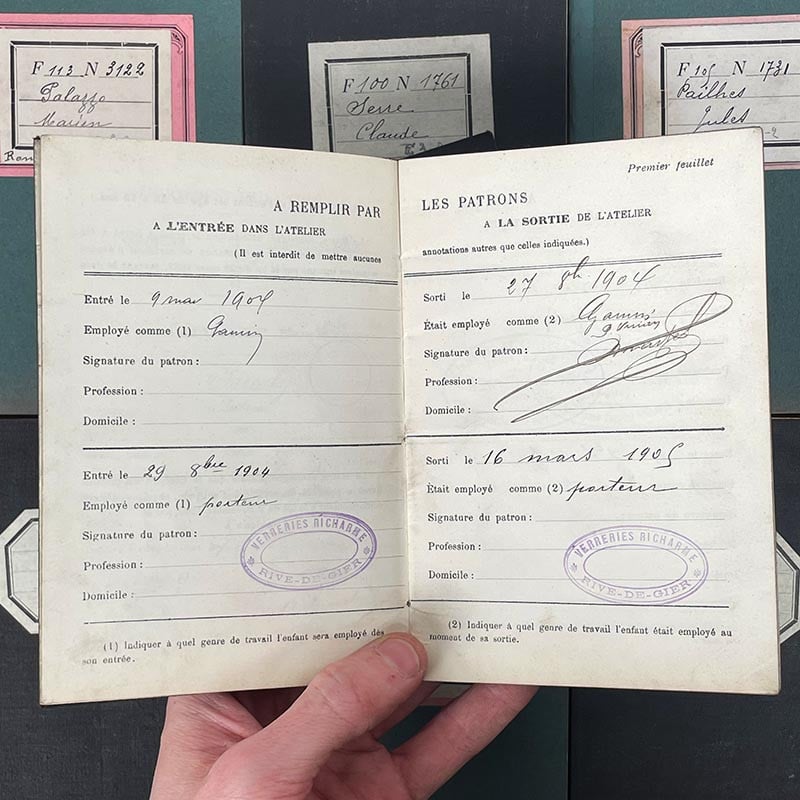 F 113 N 3122
Palazzo
Marien
F 100 N 1761
Serre
Claude
F 105 N 1731
Pailhes
Jules
A REMPLIR PAR
A L'ENTRÉE DANS L'ATELIER
(Il est interdit de mettre aucunes
Entré le 9 mai 1904
Employé comme (1) Gamin
Signature du patron :
Profession :
Domicile :
Entré le 29 8bre 1904
Employé comme (1) porteur
Signature du patron :
Profession :
Domicile :
VERRERIES RICHARME
RIVE-DE-GIER
(1) Indiquer à quel genre de travail l'enfant sera employé dès
son entrée.
Premier feuillet
LES PATRONS
A LA SORTIE DE L'ATELIER
annotations autres que celles indiquées.)
Sorti le 27 8bre 1904
Était employé comme (2) Gamin
Signature du patron :
Profession :
Domicile :
Sorti le 16 mars 1905
Était employé comme (2) porteur
Signature du patron :
Profession :
Domicile :
VERRERIES RICHARME
RIVE-DE-GIER
(2) Indiquer à quel genre de travail l'enfant était employé au
moment de sa sortie.